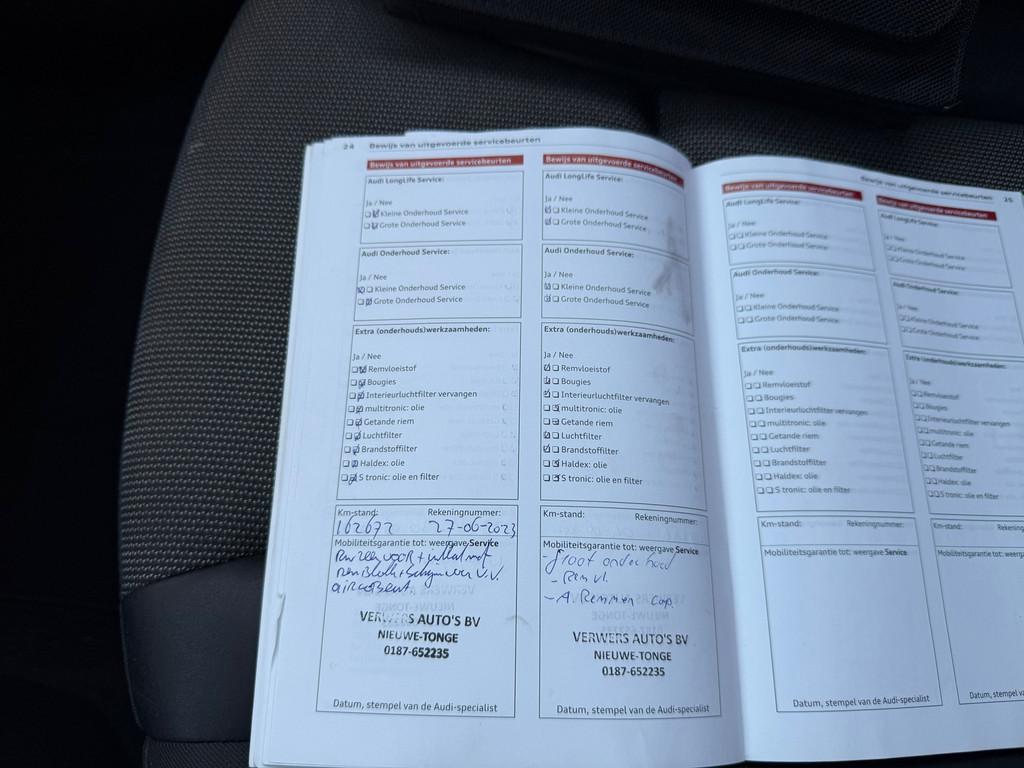 24 Bewijs van uitgevoerde servicebeurten
Bewijs van uitgevoerde servicebeurten
Audi LongLife Service:
Ja / Nee
Kleine Onderhoud Service
Grote Onderhoud Service
Audi Onderhoud Service:
Ja / Nee
Kleine Onderhoud Service
Grote Onderhoud Service
Extra (onderhouds)werkzaamheden:
Ja / Nee
Remvloeistof
Bougies
Interieurluchtfilter vervangen
multitronic: olie
Getande riem
Luchtfilter
Brandstoffilter
Haldex: olie
S tronic: olie en filter
Km-stand: Rekeningnummer:
162672 27-06-2023
Mobiliteitsgarantie tot: weergave Service
V.V.
VERWERS AUTO'S BV
NIEUWE-TONGE
0187-652235
Datum, stempel van de Audi-specialist
Bewijs van uitgevoerde servicebeurten
Audi LongLife Service:
Ja / Nee
Kleine Onderhoud Service
Grote Onderhoud Service
Audi Onderhoud Service:
Ja / Nee
Kleine Onderhoud Service
Grote Onderhoud Service
Extra (onderhouds)werkzaamheden:
Ja / Nee
Remvloeistof
Bougies
Interieurluchtfilter vervangen
multitronic: olie
Getande riem
Luchtfilter
Brandstoffilter
Haldex: olie
S tronic: olie en filter
Km-stand: Rekeningnummer:
Mobiliteitsgarantie tot: weergave Service
- groot onderhoud
- Rem vl.
- A. Remmen
VERWERS AUTO'S BV
NIEUWE-TONGE
0187-652235
Datum, stempel van de Audi-specialist
Bewijs van uitgevoerde servicebeurten 25
Bewijs van uitgevoerde servicebeurten
Audi LongLife Service:
Ja / Nee
Kleine Onderhoud Service
Grote Onderhoud Service
Audi Onderhoud Service:
Ja / Nee
Kleine Onderhoud Service
Grote Onderhoud Service
Extra (onderhouds)werkzaamheden:
Ja / Nee
Remvloeistof
Bougies
Interieurluchtfilter vervangen
multitronic: olie
Getande riem
Luchtfilter
Brandstoffilter
Haldex: olie
S tronic: olie en filter
Km-stand: Rekeningnummer:
Mobiliteitsgarantie tot: weergave Service
Datum, stempel van de Audi-specialist
Bewijs van uitgevoerde servicebeurten
Audi LongLife Service:
Ja / Nee
Kleine Onderhoud Service
Grote Onderhoud Service
Audi Onderhoud Service:
Ja / Nee
Kleine Onderhoud Service
Grote Onderhoud Service
Extra (onderhouds)werkzaamheden:
Ja / Nee
Remvloeistof
Bougies
Interieurluchtfilter vervangen
multitronic: olie
Getande riem
Luchtfilter
Brandstoffilter
Haldex: olie
S tronic: olie en filter
Km-stand:
Mobiliteitsgarantie tot: weergave
Datum, stempel